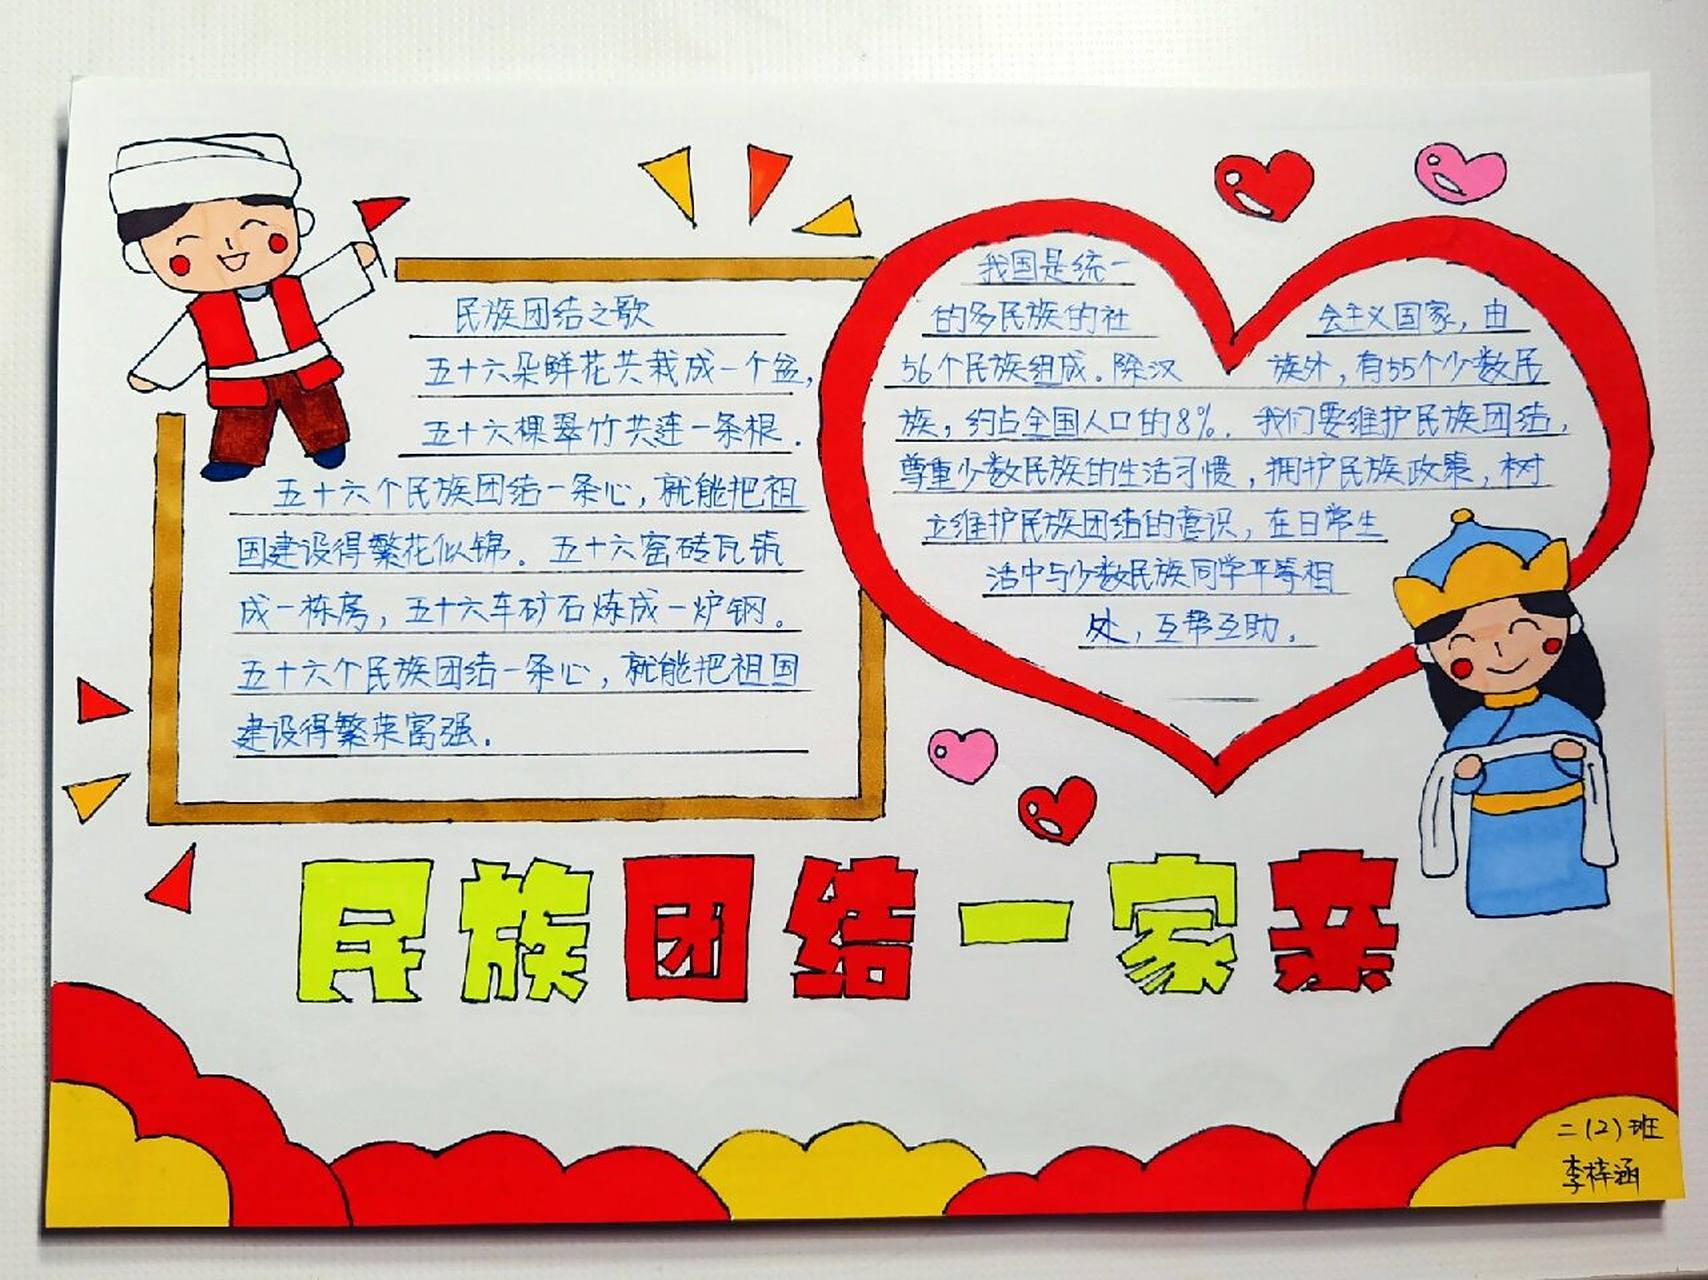 民族团结之歌
五十六朵鲜花共栽成一个盆，
五十六棵翠竹共连一条根．
五十六个民族团结一条心，就能把祖
国建设得繁花似锦。五十六窑砖瓦筑
成一栋房，五十六车矿石炼成一炉钢。
五十六个民族团结一条心，就能把祖国
建设得繁荣富强．
我国是统一
的多民族的社 会主义国家，由
56个民族组成。除汉 族外，有55个少数民
族，约占全国人口的8%．我们要维护民族团结，
尊重少数民族的生活习惯，拥护民族政策，树
立维护民族团结的意识，在日常生
活中与少数民族同学平等相
处，互帮互助．
民族团结一家亲
二(2)班
李梓涵